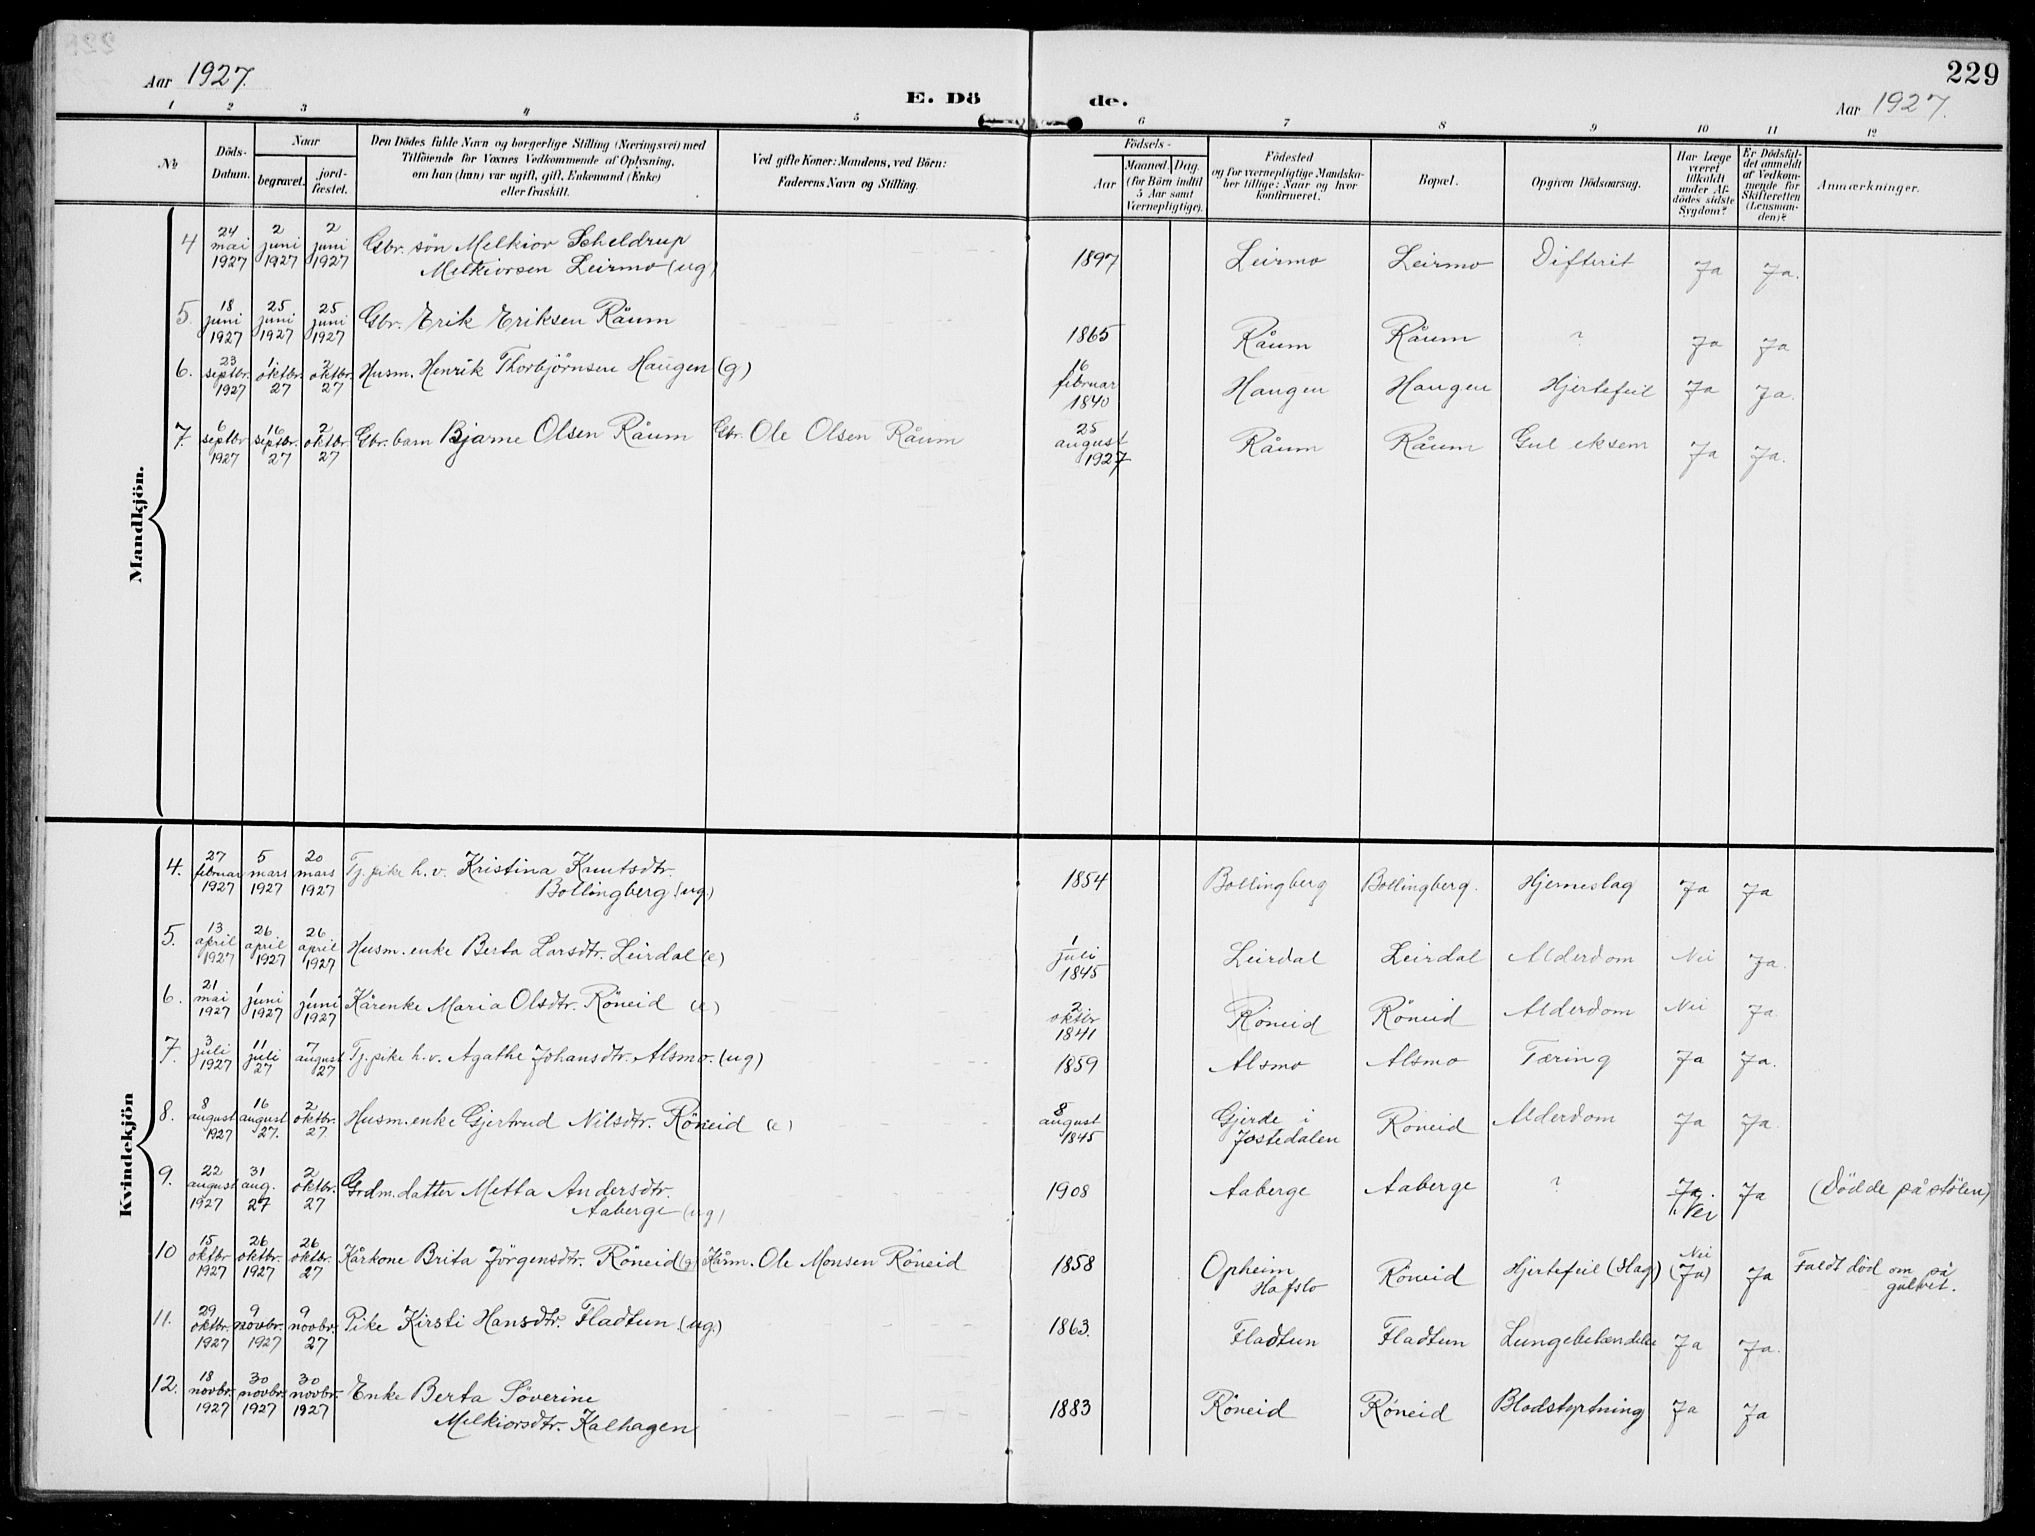 229
Aar 1927.
E. Dö de.
Aar 1927.
1 2 3 4 5 6 7 8 9 10 11 12
No
Döds-
Datum.
Naar
begravet.
jord-
fæstet.
Den Dödes fulde Navn og borgerlige Stilling (Næringsvei) med
Tilföiende for Voxnes Vedkommende af Oplysning,
om han (hun) var ugift, gift, Enkemand (Enke)
eller fraskilt.
Ved gifte Koner: Mandens, ved Börn:
Faderens Navn og Stilling.
Födsels-
Aar
Maaned. Dag.
(for Börn indtil
5 Aar samt
Værnepligtige).
Födested
og for værnepligtige Mandska-
ber tillige: Naar og hvor
konfirmeret.
Bopæl.
Opgiven Dödsaarsag.
Har Læge
været
tilkaldt
under Af-
dödes sidste
Sygdom?
Er Dödsfal-
det anmeldt
af Vedkom-
mende for
Skifteretten
(Lensman-
den)?
Anmærkninger.
Mandkjön.
4 24 mai 1927 2 juni 1927 2 juni 1927 Gbr. søn Melkior Scheldrup
Melkiorsen Leirmo (ug) 1897 Leirmo Leirmo Difterit Ja Ja.
5 18 juni 1927 25 juni 1927 25 juni 1927 Gbr. Erik Eriksen Råum 1865 Råum Råum ? Ja Ja
6. 23 septbr. 1927 1 oktbr. 27 2 oktbr. 27 Husm. Henrik Thorbjörnsen Haugen (g) 16 februar 1840 Haugen Haugen Hjertefeil Ja Ja.
7 6 septbr 1927 16 septbr. 27 2 oktbr. 27 Gbr. barn Bjarne Olsen Råum Gbr. Ole Olsen Råum 25 august 1927 Råum Råum Gul eksem Ja Ja.
Kvindekjön
4. 27 februar 1927 5 mars 1927 20 mars 1927 Tj. pike h. v. Kristina Knutsdtr.
Bollingberg (ug.) 1854 Bollingberg Bollingberg. Hjerneslag Ja Ja
5. 13 april 1927 26 april 1927 26 april 1927 Husm. enke Berta Larsdtr. Leirdal (e) 1 juli 1845 Leirdal Leirdal Alderdom Nei Ja.
6. 21 mai 1927 1 juni 1927 1 juni 1927 Kårenke Maria Olsdtr. Röneid (e) 2 oktbr 1841 Röneid Röneid Alderdom Nei Ja
7. 3 juli 1927 11 juli 27 7 august 27 Tj. pike h. v. Agathe Johansdtr. Alsmo. (ug) 1859 Alsmo Alsmo Tæring Ja Ja.
8. 8 august 1927 16 august 27. 2 oktbr. 27 Husm. enke Gjertrud Nilsdtr. Röneid (e) 8 august 1845 Gjerde i
Jostedalen Röneid Alderdom Ja Ja.
9. 22 august 1927 31 aug. 27 2 oktbr. 27 Grdm. datter Metta Andersdtr.
Aaberge (ug) 1908 Aaberge Aaberge ? Ja.
Nei Ja (Dödde på stölen)
10 15 oktbr 1927 26 oktbr. 1927 26 oktbr. 27 Kårkone Brita Jörgensdtr. Röneid (g) Kårm. Ole Monsen Röneid 1858 Opheim
Hafslo Röneid Hjertefeil (slag) Nei
(Ja) Ja Faldt död om på
gulvet.
11. 29 oktbr. 1927 9 novbr. 1927 9 novbr. 27 Pike Kirsti Hansdtr. Fladtun (ug.) 1863. Fladtun Fladtun Lungebetændelse Ja Ja.
12. 18 novbr. 1927 30 novbr. 1927 30 novbr. 1927 Enke Berta Söverine
Melkiorsdtr. Kalhagen 1883 Röneid Röneid Blodstyrtning Ja Ja